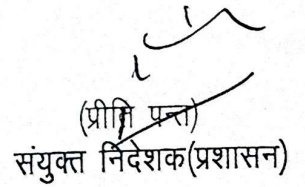 (प्रीति पन्त)
संयुक्त निदेशक(प्रशासन)